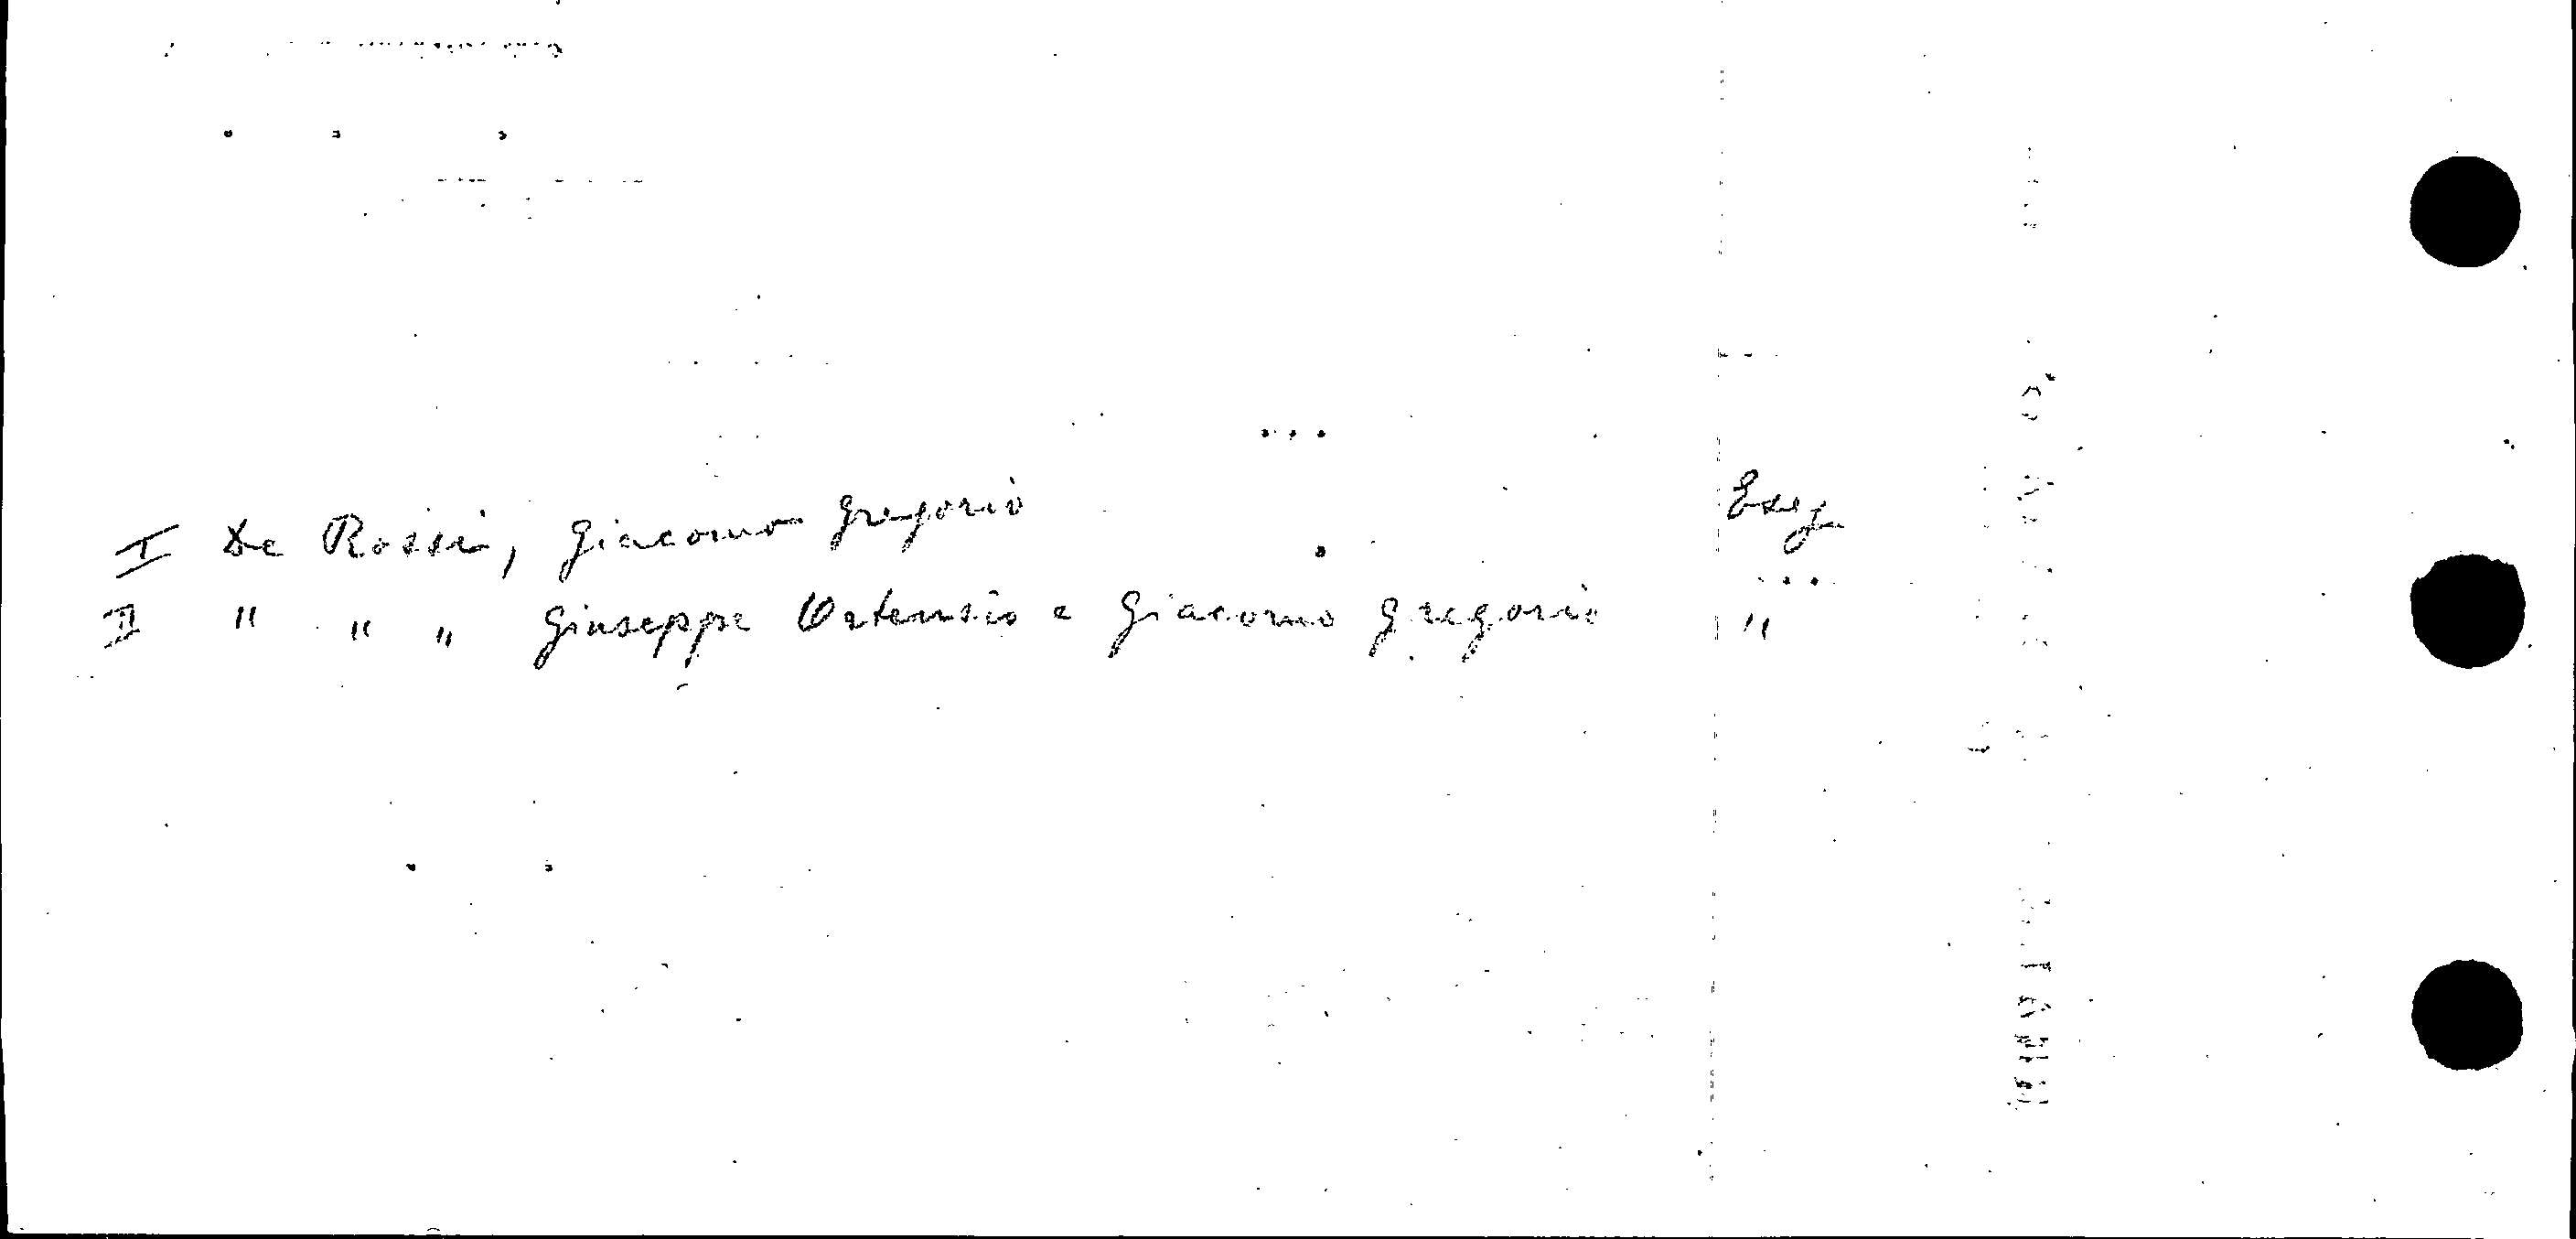 I De Rossi, Giacomo Gregorio Eseg
II " " " Giuseppe Ortensio e Giacomo Gregorio "